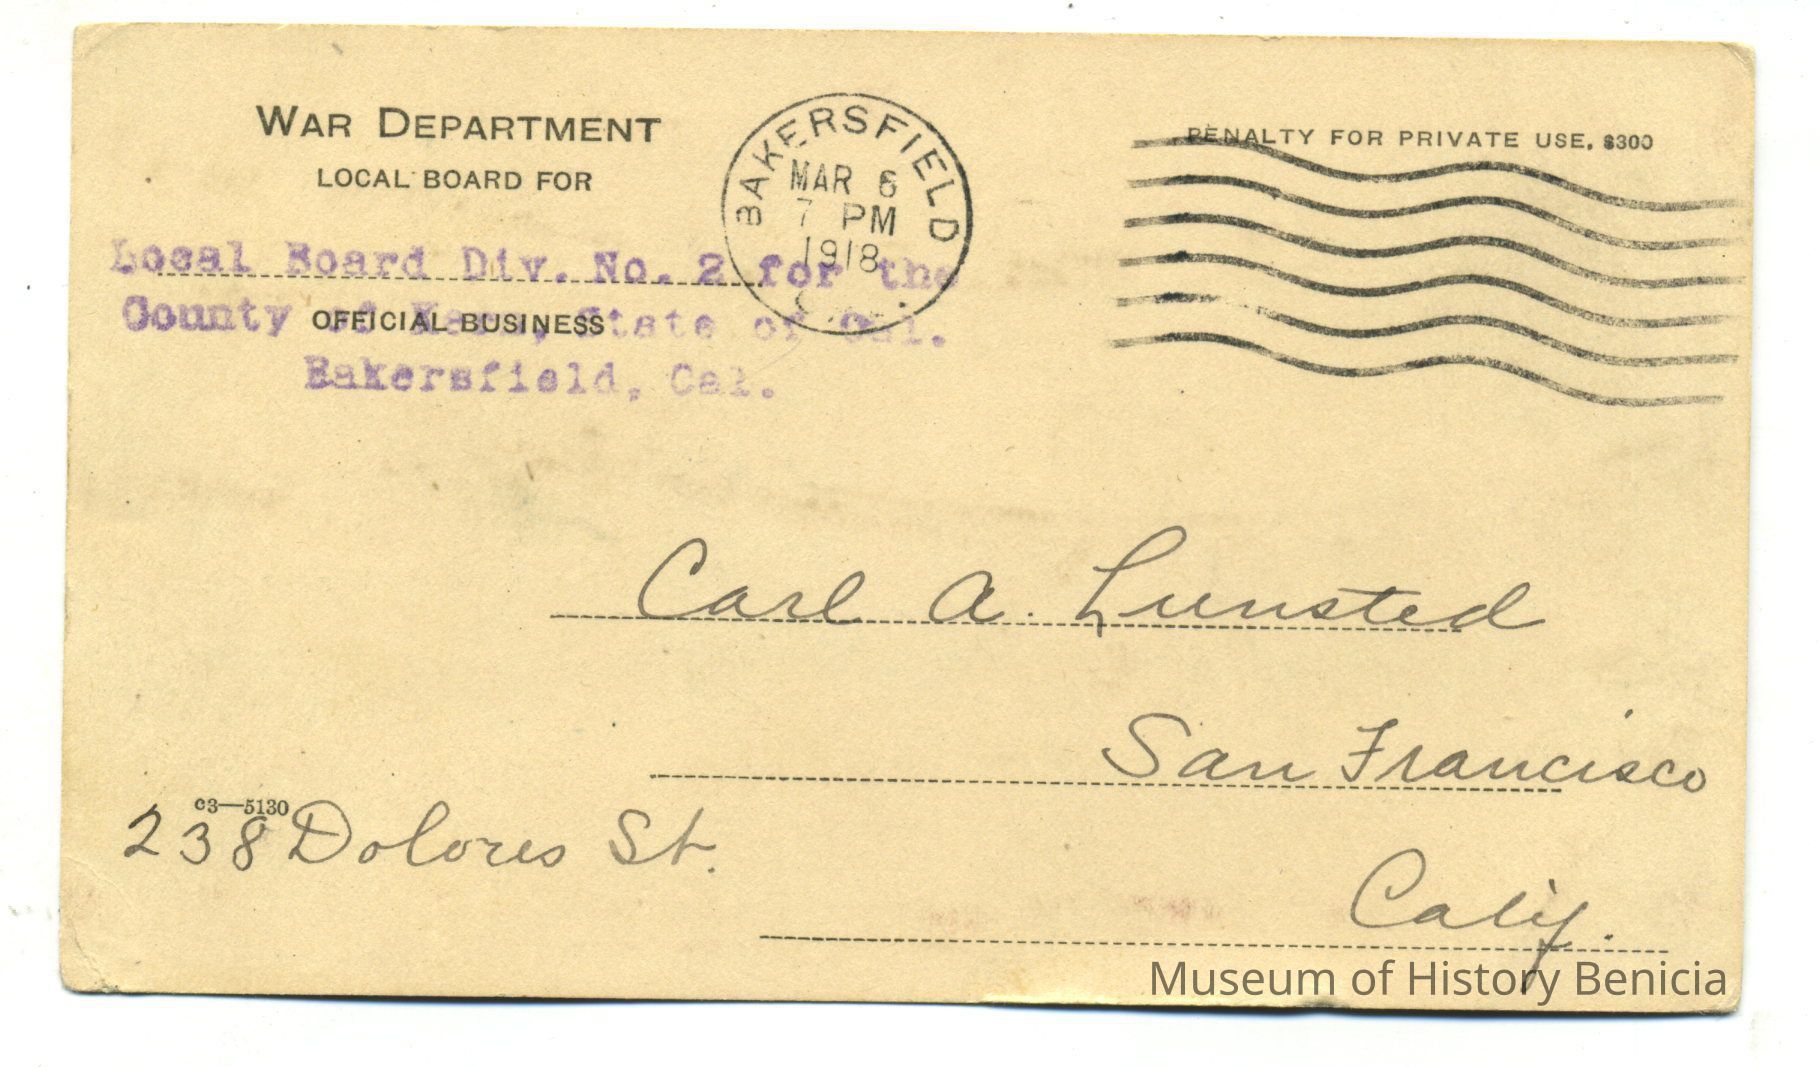 WAR DEPARTMENT
LOCAL BOARD FOR
Local Board Div. No. 2 for the
County of Kern, State of Cal.
OFFICIAL BUSINESS
Bakersfield, Cal.
BAKERSFIELD
MAR 6
7 PM
1918
PENALTY FOR PRIVATE USE, $300
Carl A. Lunsted
San Francisco
c3—5130
238 Dolores St.
Calif.
Museum of History Benicia